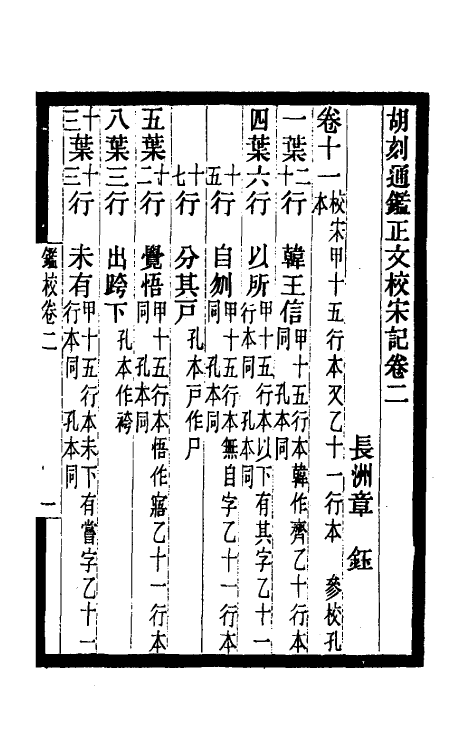 胡刻通鑑正文校宋記卷二
長洲章　鈺
卷十一校宋甲十五行本又乙十一行本　參校孔本
一葉二十行　韓王信甲十五行本韓作齊乙十行本同　孔本同
四葉六行　以所甲十五行本以下有其字乙十一行本同　孔本同
十五行　自刎甲十五行本無自字乙十一行本同　孔本同
十七行　分其戸孔本戸作尸
五葉十二行　覺悟甲十五行本悟作寤乙十一行本同　孔本同
八葉三行　出跨下孔本作袴
十三葉十三行　未有甲十五行本未下有嘗字乙十一行本同　孔本同
鑑校卷二
一